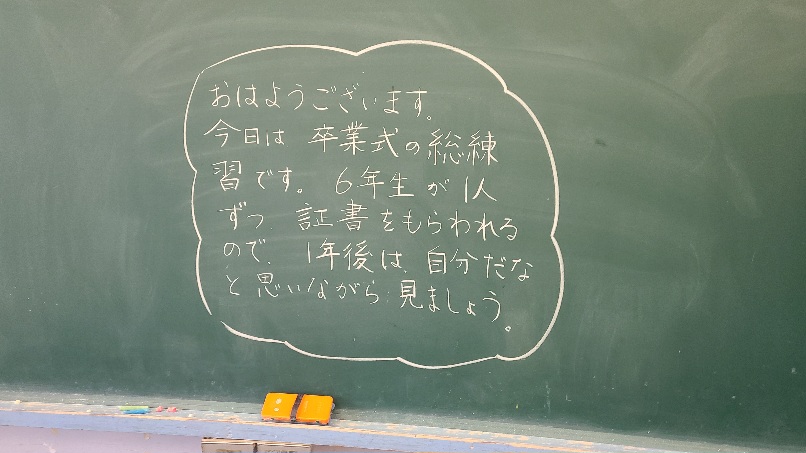 おはようございます。
今日は 卒業式の総練
習です。 6年生が1人
ずつ、証書をもらわれる
ので、1年後は、自分だな
と思いながら、見ましょう。